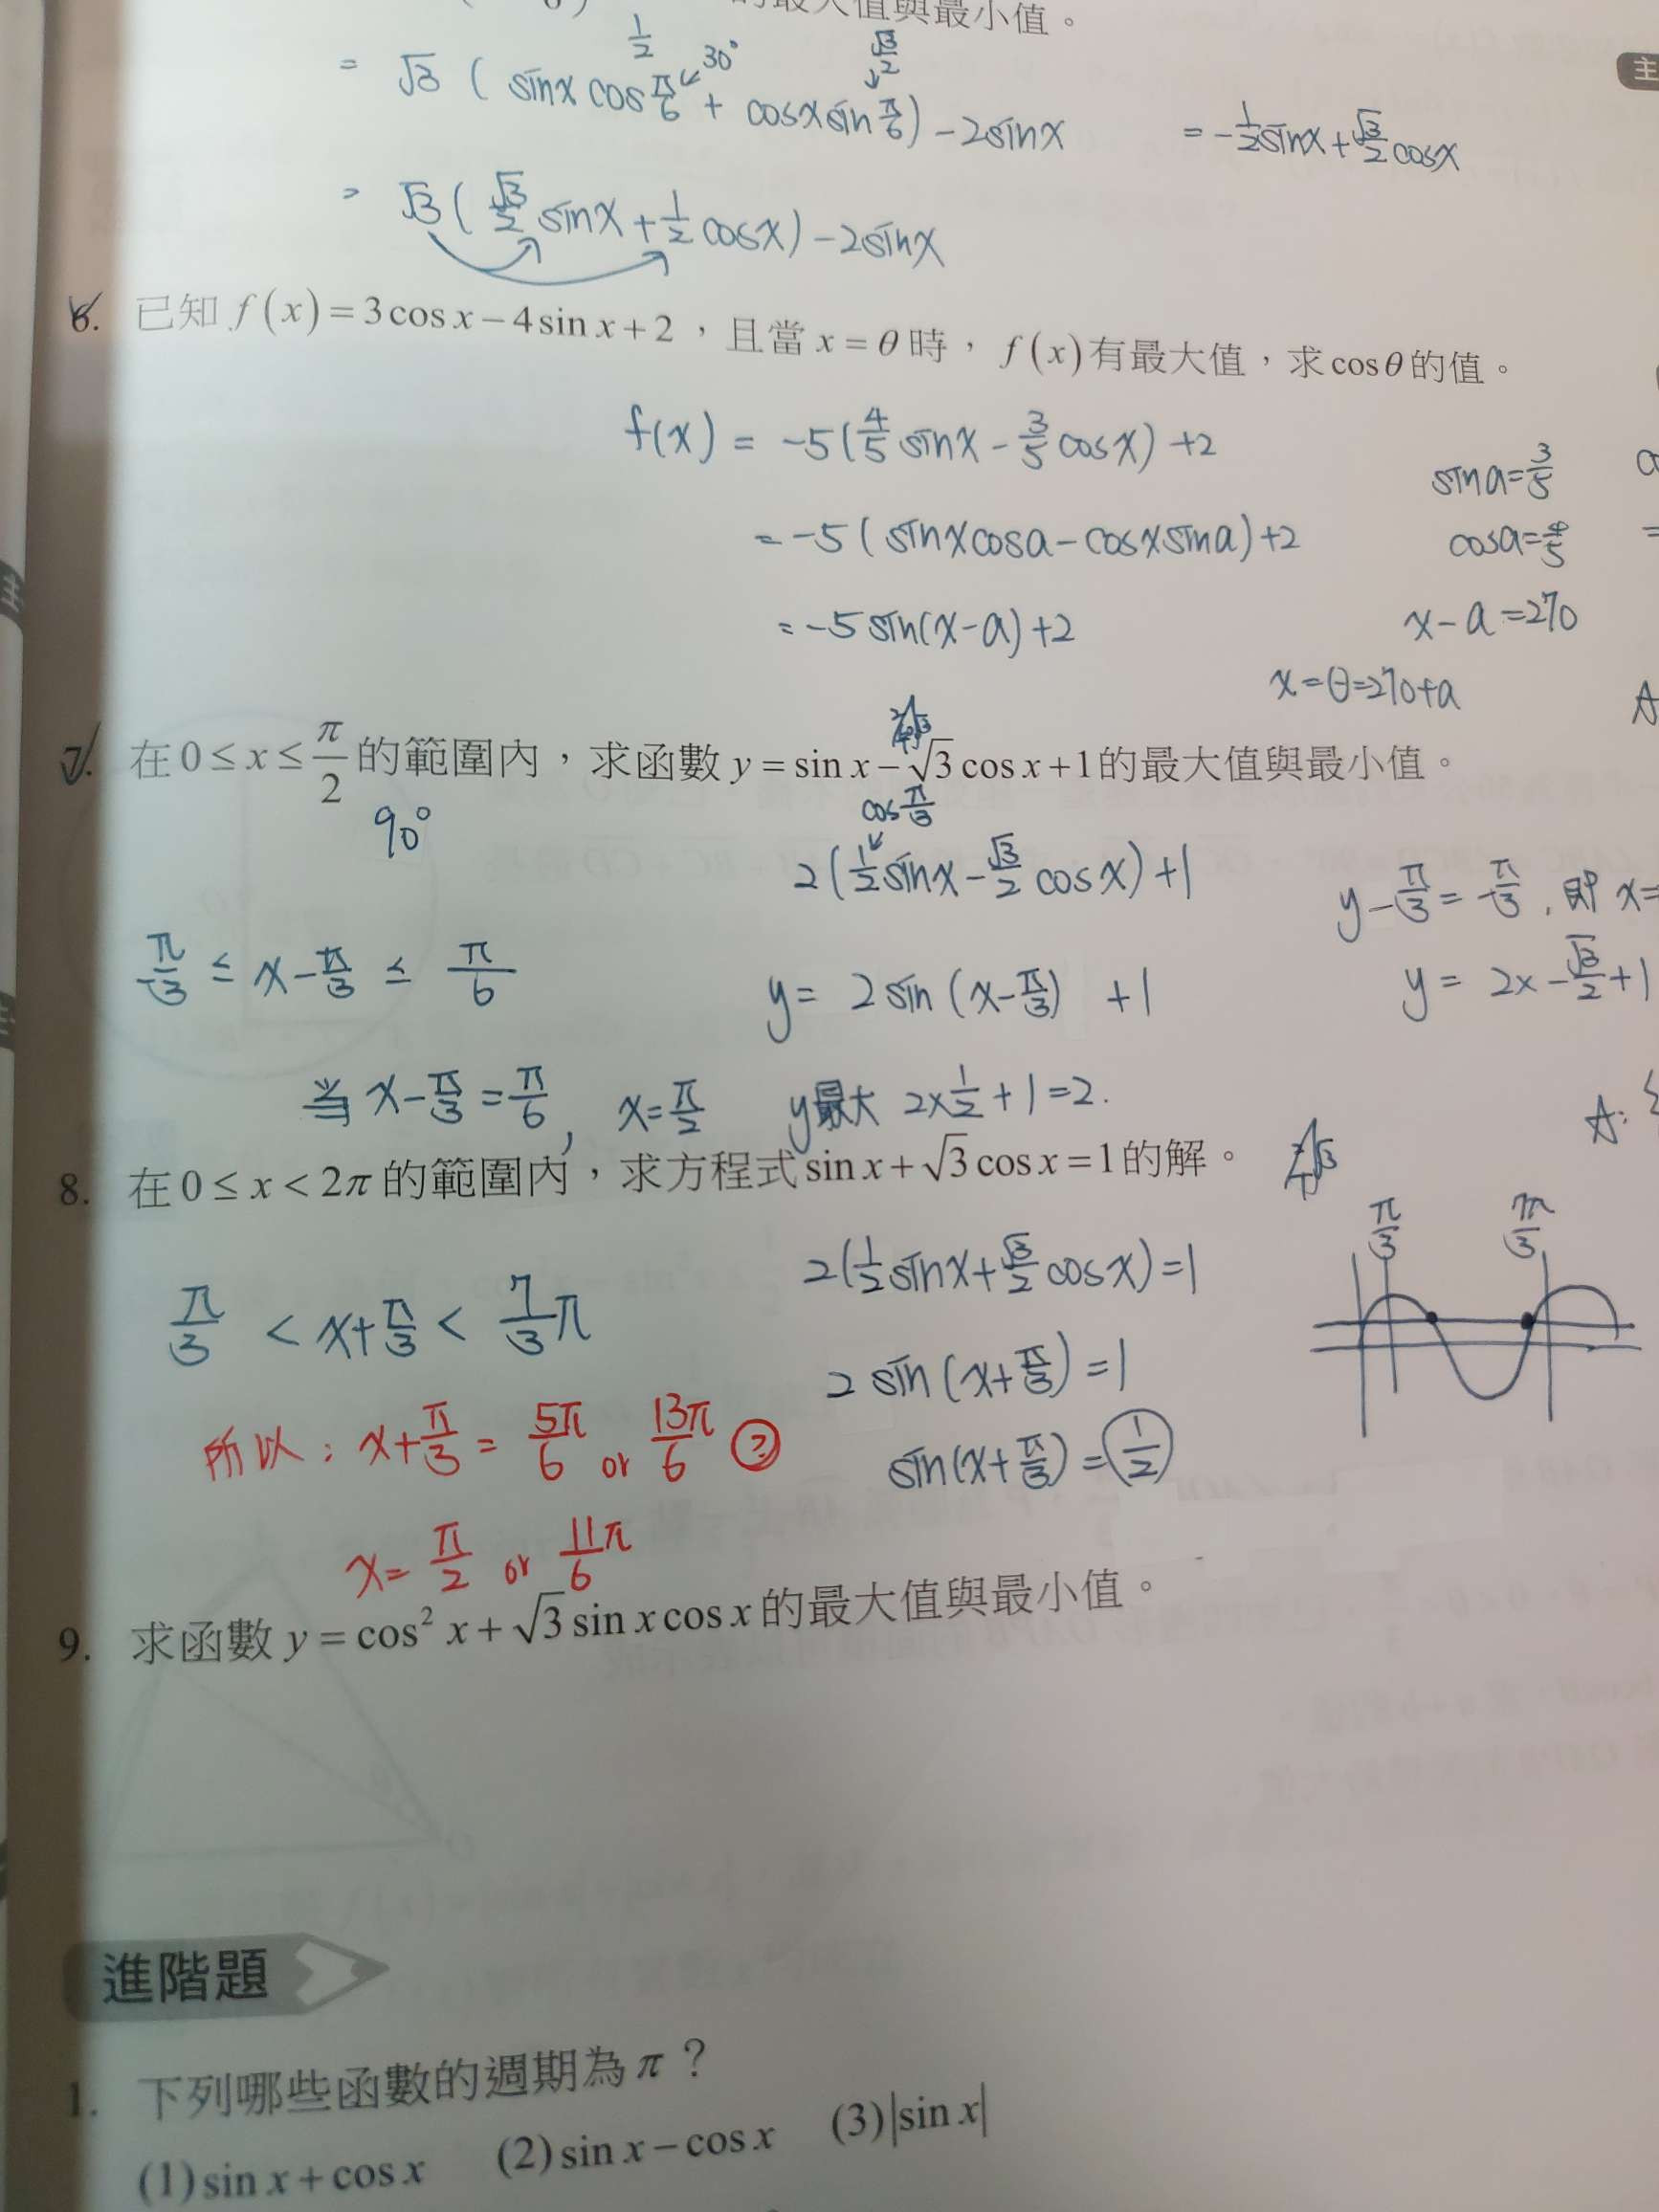 的最大值與最小值。
主
1/2 30° √3/2
= √3 ( sinx cos π/6 + cosx sin π/6 ) - 2sinx = -1/2 sinx + √3/2 cosx
= √3 ( √3/2 sinx + 1/2 cosx ) - 2sinx
6. 已知 f(x) = 3cos x − 4sin x + 2，且當 x = θ 時，f(x) 有最大值，求 cosθ 的值。
f(x) = -5( 4/5 sinx - 3/5 cosx ) +2
sina = 3/5
= -5 ( sinxcosa - cosxsina ) +2
cosa = 4/5
= -5 sin(x-a) +2
x - a = 270
x = θ = 270+a
7. 在 0 ≤ x ≤ π/2 的範圍內，求函數 y = sin x − √3 cos x + 1 的最大值與最小值。
90°
cos π/3
2( 1/2 sinx - √3/2 cosx ) +1
y - π/3 = -π/3, 即 x=
-π/3 ≤ x - π/3 ≤ π/6
y = 2 sin (x - π/3) +1
y = 2x - √3/2 +1
当 x - π/3 = π/6, x = π/2 y最大 2x 1/2 + 1 = 2.
A:
8. 在 0 ≤ x < 2π 的範圍內，求方程式 sin x + √3 cos x = 1 的解。
2 √3 1
π/3 7π/3
2( 1/2 sinx + √3/2 cosx ) = 1
π/3 < x + π/3 < 7/3 π
2 sin (x + π/3) = 1
所以: x + π/3 = 5π/6 or 13π/6 ?
sin(x + π/3) = 1/2
x = π/2 or 11π/6
9. 求函數 y = cos² x + √3 sin x cos x 的最大值與最小值。
進階題
1. 下列哪些函數的週期為 π？
(1) sin x + cos x (2) sin x − cos x (3) |sin x|